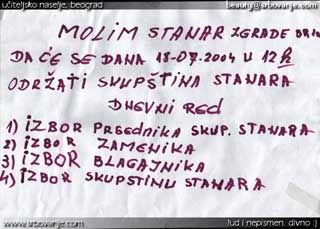 učiteljsko naselje, beograd
beauty@srbovanje.com
MOLIM STANAR ZGRADE
DA ĆE SE DANA 18-07.2004 U 12 h
ODRŽATI SKUPŠTINA STANARA
DNEVNI RED
1) IZBOR PRSEDNIKA SKUP. STANARA
2) IZBOR ZAMENIKA
3) IZBOR BLAGAJNIKA
4) IZBOR SKUPSTINU STANARA
www.srbovanje.com
lud i nepismen. divno :)